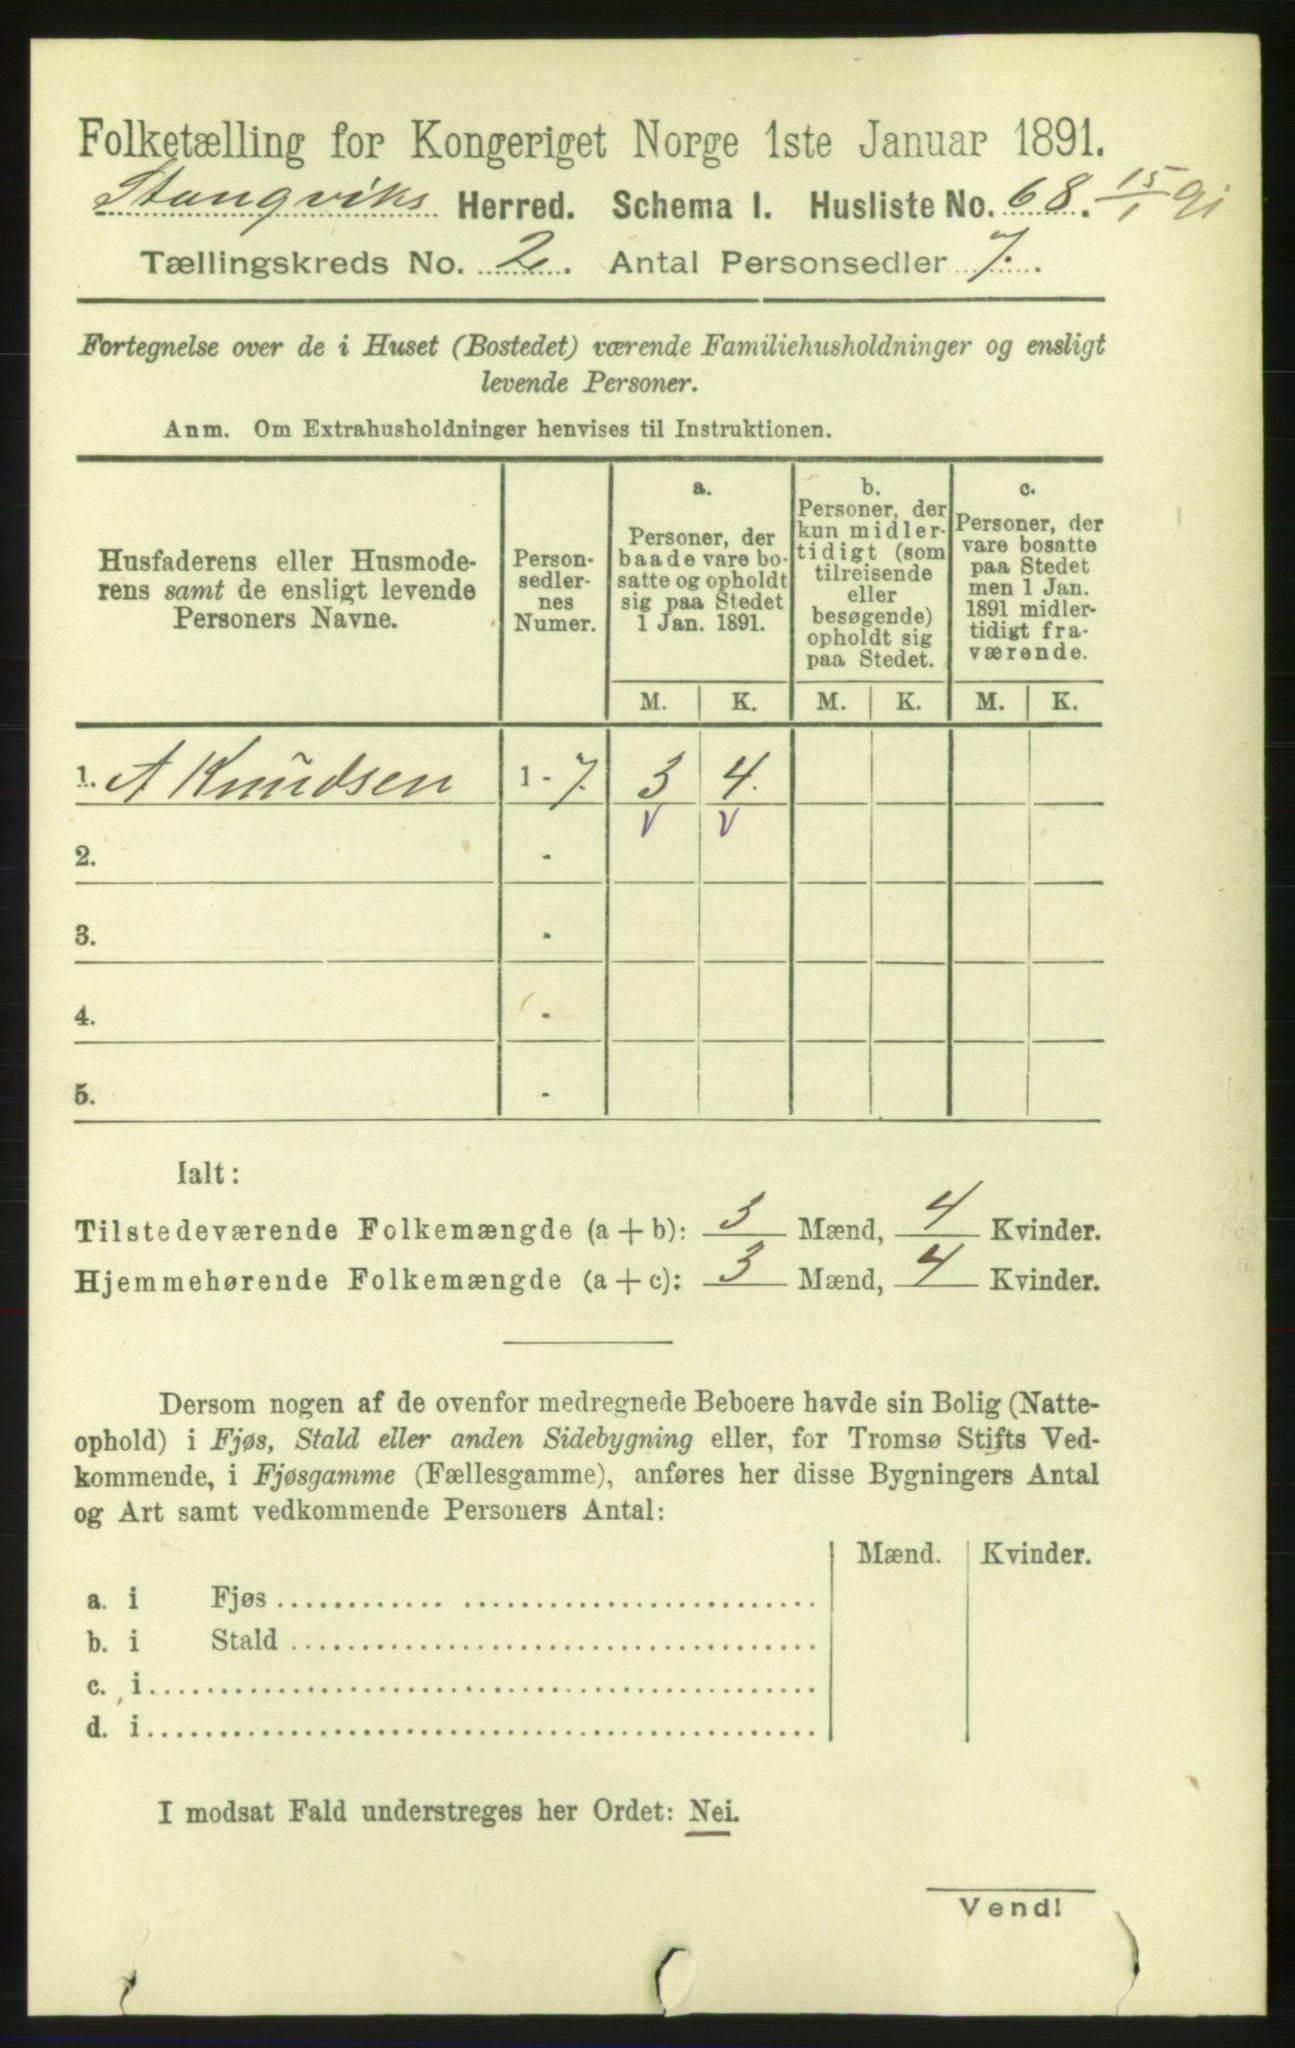 Folketælling for Kongeriget Norge 1ste Januar 1891.
Stangviks Herred. Schema I. Husliste No. 68. 15/1 91
Tællingskreds No. 2. Antal Personsedler 7.
Fortegnelse over de i Huset (Bostedet) værende Familiehusholdninger og ensligt
levende Personer.
Anm. Om Extrahusholdninger henvises til Instruktionen.
Husfaderens eller Husmode-
rens samt de ensligt levende
Personers Navne.
Person-
sedler-
nes
Numer.
a.
Personer, der
baade vare bo-
satte og opholdt
sig paa Stedet
1 Jan. 1891.
b.
Personer, der
kun midler-
tidigt (som
tilreisende
eller
besøgende)
opholdt sig
paa Stedet.
c.
Personer, der
vare bosatte
paa Stedet
men 1 Jan.
1891 midler-
tidigt fra-
værende.
M. K. M. K. M. K.
1. A Knudsen 1 - 7. 3 4.
v v
2. -
3. -
4. -
5. -
Ialt:
Tilstedeværende Folkemængde (a + b): 3 Mænd, 4 Kvinder.
Hjemmehørende Folkemængde (a + c): 3 Mænd, 4 Kvinder.
Dersom nogen af de ovenfor medregnede Beboere havde sin Bolig (Natte-
ophold) i Fjøs, Stald eller anden Sidebygning eller, for Tromsø Stifts Ved-
kommende, i Fjøsgamme (Fællesgamme), anføres her disse Bygningers Antal
og Art samt vedkommende Personers Antal:
Mænd. Kvinder.
a. i Fjøs
b. i Stald
c. i
d. i
I modsat Fald understreges her Ordet: Nei.
Vend!